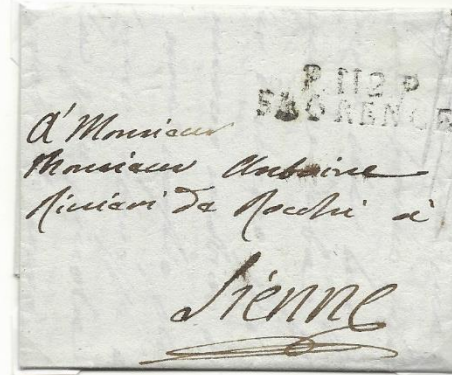 P. 112 P.
FLORENCE
à Monsieur
Monsieur Antoine
Ricciari da Rocchi à
Sienne